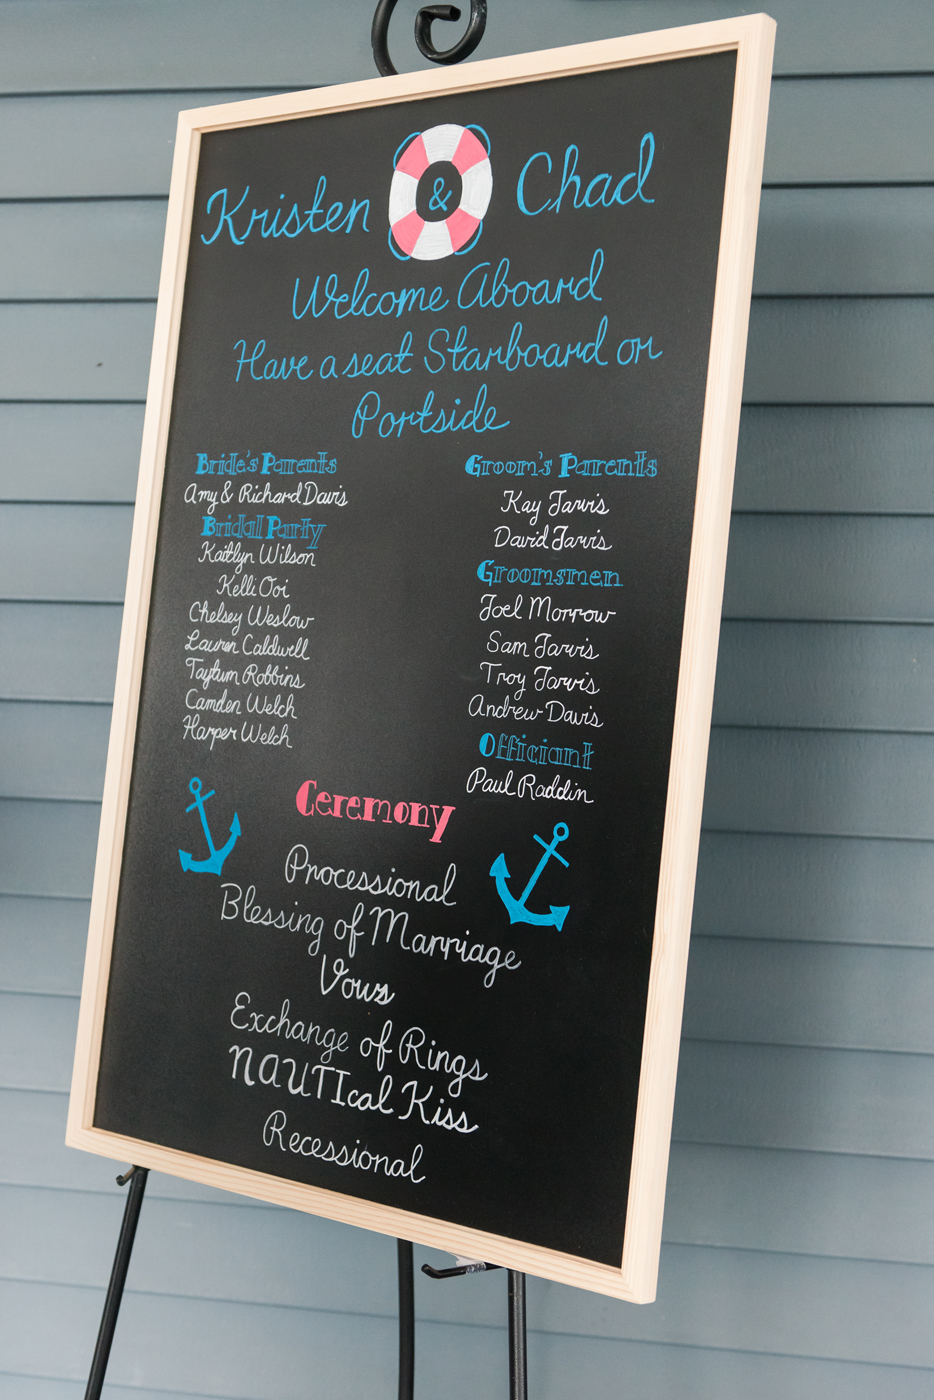 Kristen & Chad
Welcome Aboard
Have a seat Starboard or
Portside
Bride's Parents
Amy & Richard Davis
Bridal Party
Kaitlyn Wilson
Kelli Ooi
Chelsey Weslow
Lauren Caldwell
Taytum Robbins
Camden Welch
Harper Welch
Groom's Parents
Kay Jarvis
David Jarvis
Groomsmen
Joel Morrow
Sam Jarvis
Troy Jarvis
Andrew Davis
Officiant
Paul Raddin
Ceremony
Processional
Blessing of Marriage
Vows
Exchange of Rings
NAUTIcal Kiss
Recessional